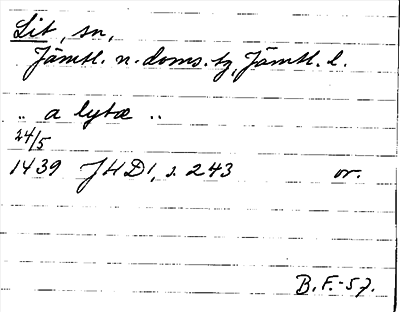 Lit, sn,
Jämtl. n. doms. tg, Jämtl. l.
.. a lytæ ..
24/5
1439 JHD 1, s. 243 or.
B. F. - 57.